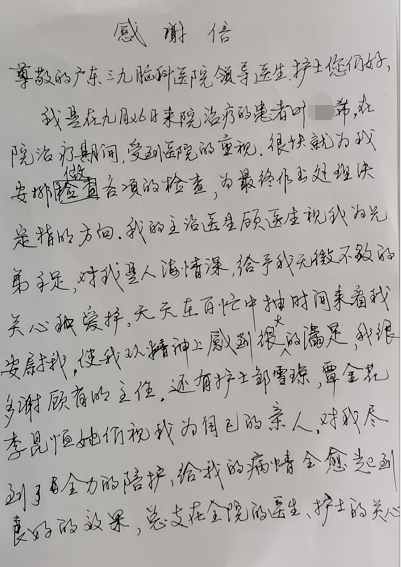 感谢信
尊敬的广东三九脑科医院领导医生、护士您们好,
我是在九月26日来院治疗的患者叶 希,在
院治疗期间,受到医院的重视.很快就为我
安排做检查各项的检查,为最终作出处理决
是指的方向.我的主治医生顾医生视我为兄
弟手足,对我是人海情深,给予我无微不致的
关心和爱护,天天在百忙中抽时间来看我
安尉我,使我从精神上感到很大的满足,我很
多谢顾有的主任.还有护士邹雪琼,覃金花
李昆恒她们视我为自已的亲人,对我尽
到了全力的陪护,给我的病情全愈起到
良好的效果,总支在全院的医生、护士的关心